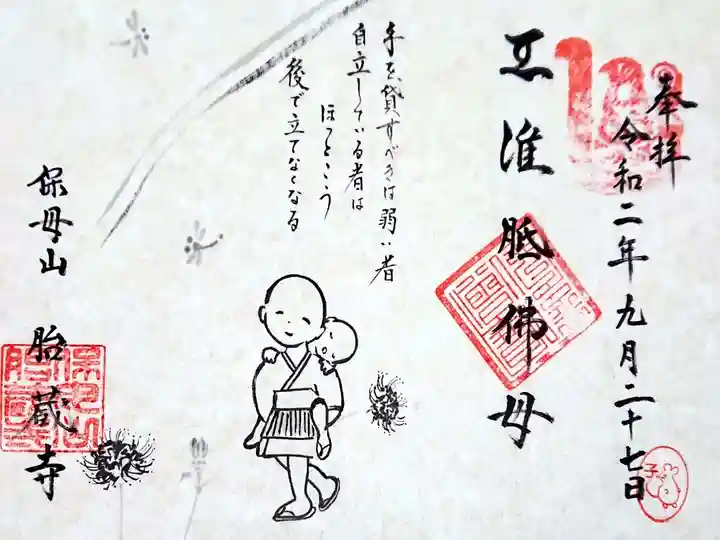 奉拝
令和二年九月二十七日
子
准胝佛母
手を貸すべきは弱い者
自立している者は
ほっとこう
後で立てなくなる
保母山 胎蔵寺